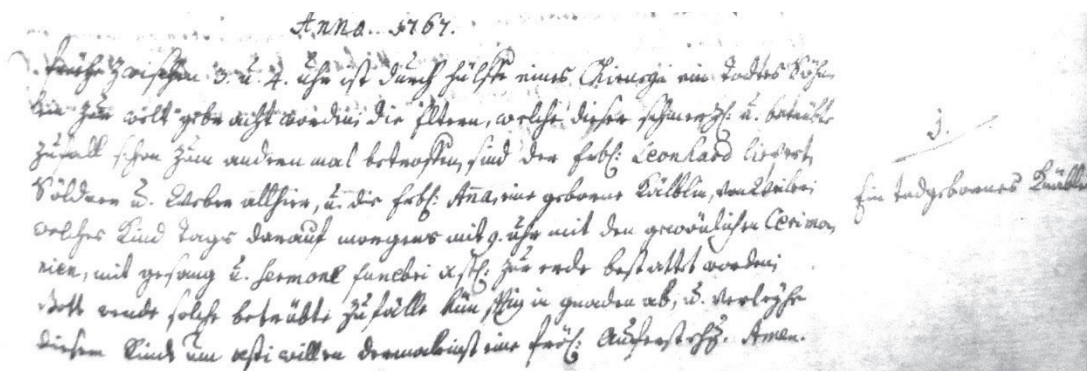 Anno. 1767.
frühe zwischen 3. u. 4. Uhr ist durch hülffe eines Chirurgi ein Todtes Söhn-
lein zur welt gebracht worden; die Eltern, welche dieser schmerzh. u. betrübte
Zufall schon zum andern mal betroffen, sind der Erb: Leonhard
Söldner u. Weber allhier, u. die Erb: Anna, eine geborne
welches Kind Tags darauf morgens mit 9. Uhr mit den gewönlichen Cerimo-
nien, mit gesang u. Sermone funebri zur erde bestattet worden;
Gott wende solche betrübte Zufälle künfftig in gnaden ab, u. verleyhe
diesem Kinde um willen dermaleinst eine fröl: Auferstehg. Amen.
3.
Ein todgebornes Knäblein